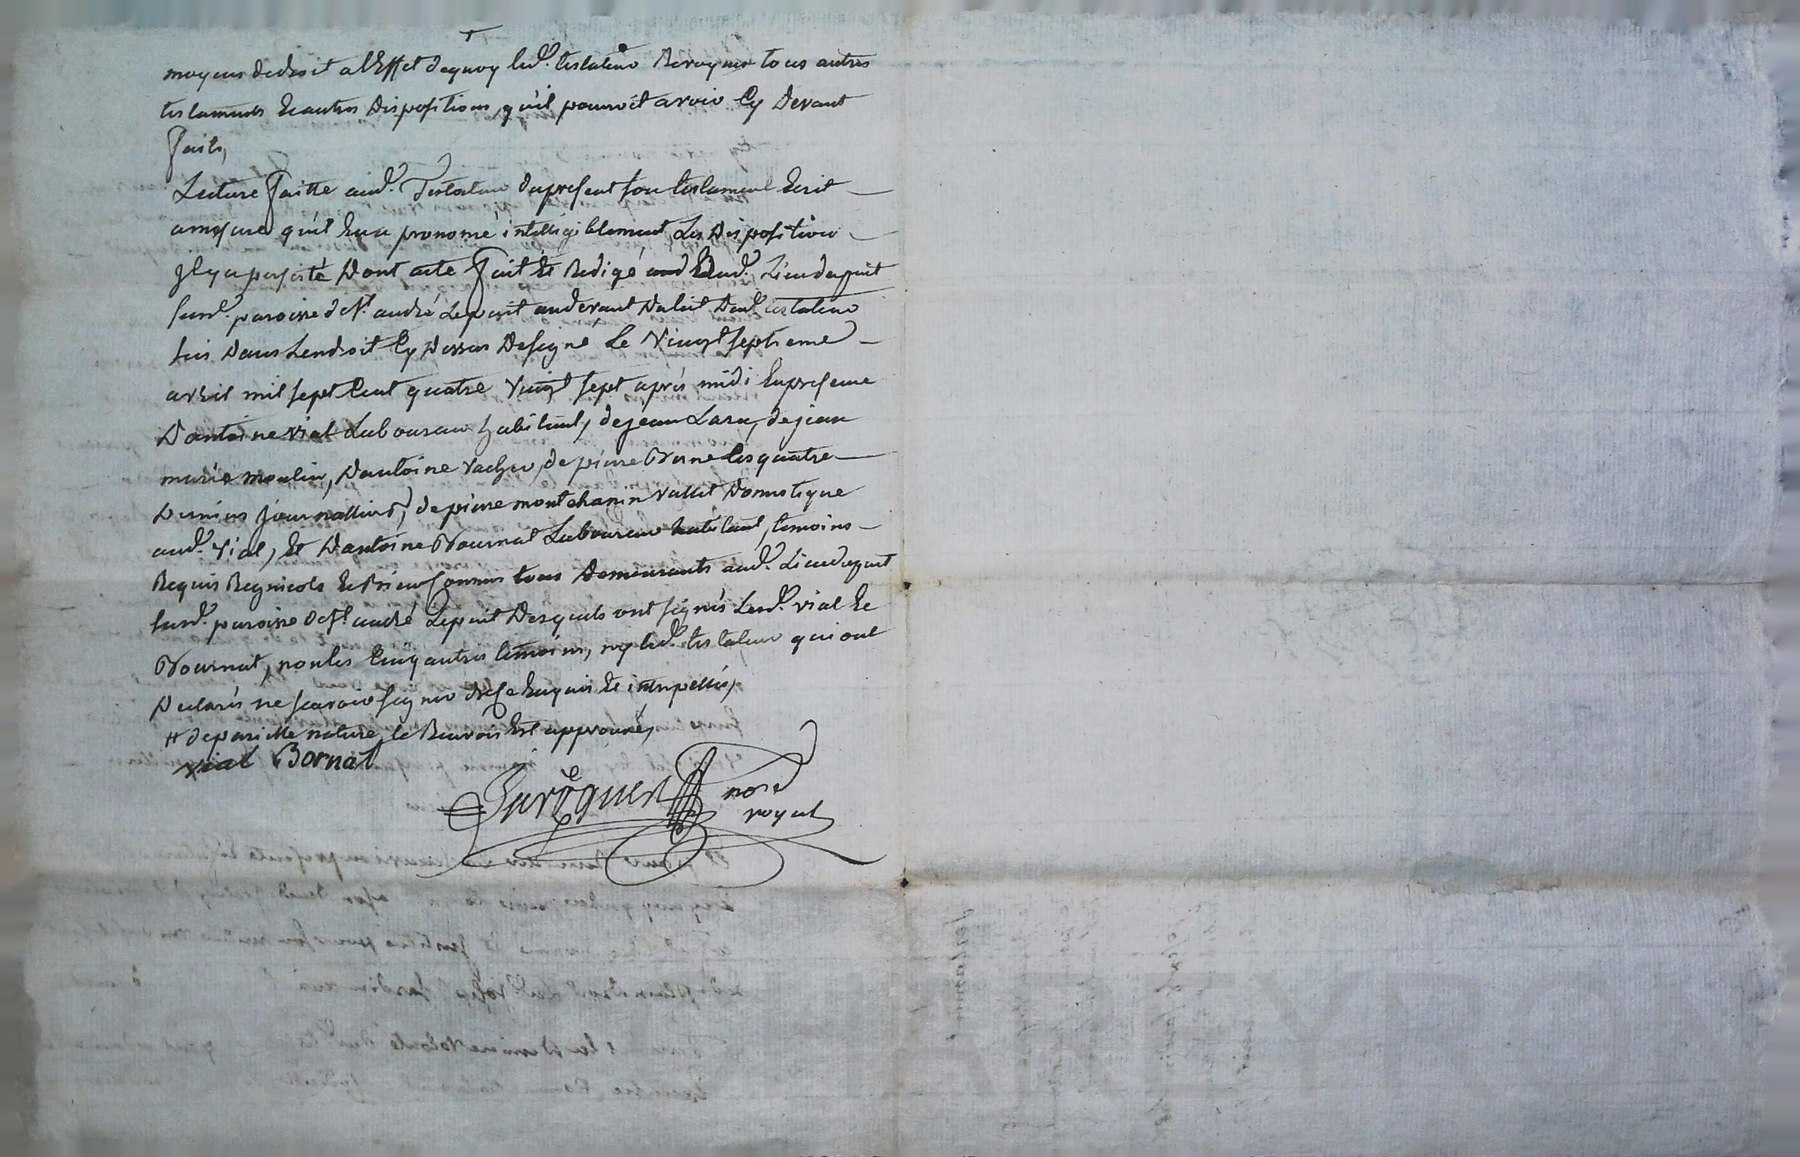 moyens de droit a l'Effet dequoy led. testateur Revoque tous autres
testaments Et autres Dispositions, qu'il pourroit avoir Cy Devant
faits,
Lecture faitte aud. Testateur du present son testament Ecrit
amesure qu'il En a prononcé intelligiblement Les Dispositions
il y a persisté Dont acte fait Et Redigé Aud. Lieu du puit
susd. paroisse de St. andré Le puit audevant Dulit Dud. testateur
sis Dans Lendroit Cy Dessus Designé Le Vingt septieme
avril mil sept Cent quatre Vingt sept aprés midi En presence
D'antoine vial Laboureur habitant, de jean Laru, de jean
marie moulin, D'antoine vacher, de pierre Verne Les quatre
Derniers journalliers, de pierre montchanin vallet Domestique
aud. vial, Et D'antoine Vournat Laboureur habitant, temoins
Requis Regnicoles Et Bien Connus tous Demeurants aud. Lieu du puit
susd. paroisse de St. andré Lepuit Desquels ont signés Lesd. vial Et
Vournat, non les Cinq autres temoins, ny led. testateur qui ont
Declarés ne scavoir signer de ce Enquis Et interpellés,
# de pareille nature, le Renvois Est approuvé,
vial Bornat
no.re
royal